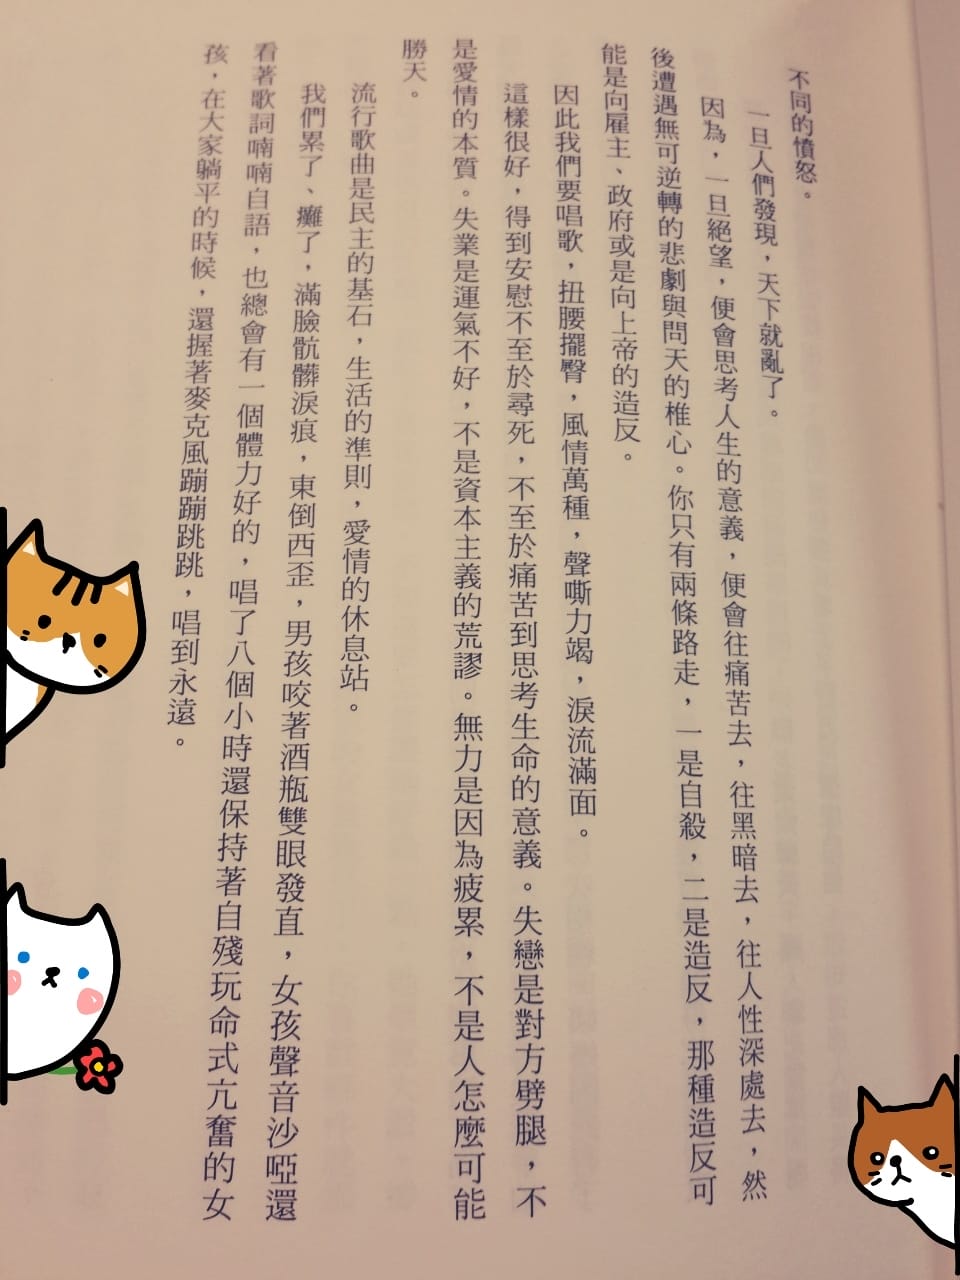 不同的憤怒。
一旦人們發現，天下就亂了。
因為，一旦絕望，便會思考人生的意義，便會往痛苦去，往黑暗去，往人性深處去，然
後遭遇無可逆轉的悲劇與問天的椎心。你只有兩條路走，一是自殺，二是造反，那種造反可
能是向雇主、政府或是向上帝的造反。
因此我們要唱歌，扭腰擺臀，風情萬種，聲嘶力竭，淚流滿面。
這樣很好，得到安慰不至於尋死，不至於痛苦到思考生命的意義。失戀是對方劈腿，不
是愛情的本質。失業是運氣不好，不是資本主義的荒謬。無力是因為疲累，不是人怎麼可能
勝天。
流行歌曲是民主的基石，生活的準則，愛情的休息站。
我們累了、癱了，滿臉骯髒淚痕，東倒西歪，男孩咬著酒瓶雙眼發直，女孩聲音沙啞還
看著歌詞喃喃自語，也總會有一個體力好的，唱了八個小時還保持著自殘玩命式亢奮的女
孩，在大家躺平的時候，還握著麥克風蹦蹦跳跳，唱到永遠。